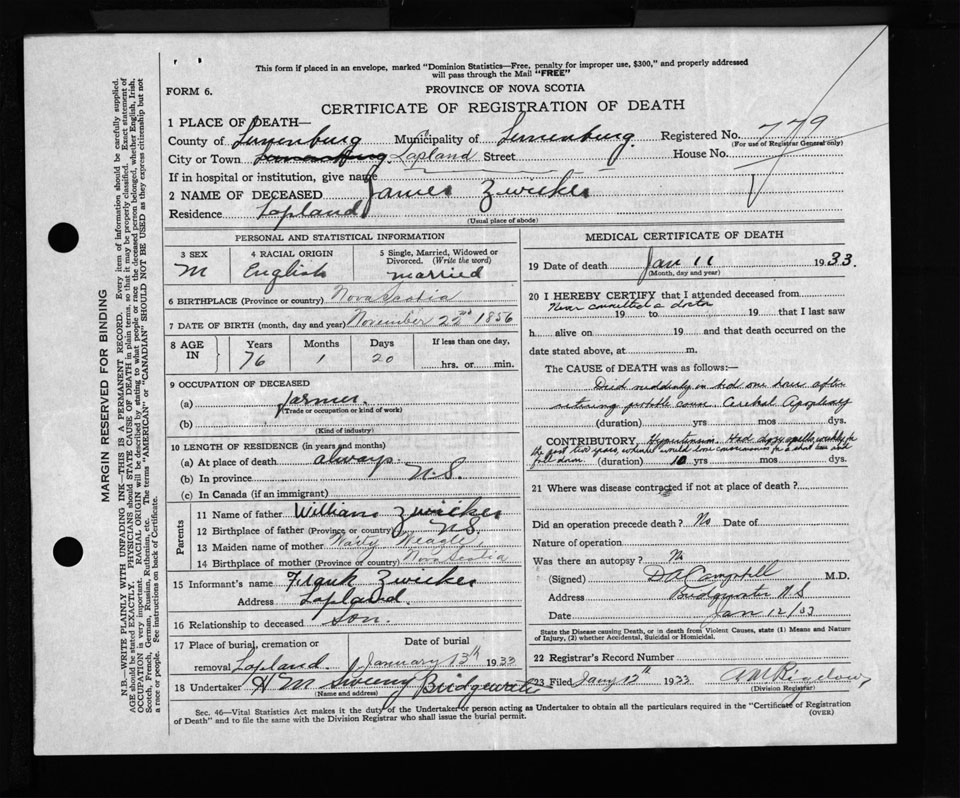 This form if placed in an envelope, marked "Dominion Statistics—Free, penalty for improper use, $300," and properly addressed
will pass through the Mail "FREE"
FORM 6.
PROVINCE OF NOVA SCOTIA
CERTIFICATE OF REGISTRATION OF DEATH
1 PLACE OF DEATH—
County of Lunenburg Municipality of Lunenburg Registered No. 779
(For use of Registrar General only)
City or Town Lapland Street House No.
If in hospital or institution, give name
2 NAME OF DECEASED James Zwicker
Residence Lapland
(Usual place of abode)
PERSONAL AND STATISTICAL INFORMATION
3 SEX M
4 RACIAL ORIGIN English
5 Single, Married, Widowed or Divorced. (Write the word) married
6 BIRTHPLACE (Province or country) Nova Scotia
7 DATE OF BIRTH (month, day and year) November 22nd 1856
8 AGE IN Years 76 Months 1 Days 20 If less than one day, hrs. or min.
9 OCCUPATION OF DECEASED
(a) farmer
(Trade or occupation or kind of work)
(b)
(Kind of industry)
10 LENGTH OF RESIDENCE (in years and months)
(a) At place of death always
(b) In province N.S.
(c) In Canada (if an immigrant)
Parents
11 Name of father William Zwicker
12 Birthplace of father (Province or country) N.S.
13 Maiden name of mother Weagle
14 Birthplace of mother (Province or country) Nova Scotia
15 Informant's name Frank Zwicker
Address Lapland
16 Relationship to deceased son
17 Place of burial, cremation or removal Lapland
Date of burial January 13th 1933
18 Undertaker H M Sweeny Bridgewater
(Name and address)
MEDICAL CERTIFICATE OF DEATH
19 Date of death Jan 11 1933.
(Month, day and year)
20 I HEREBY CERTIFY that I attended deceased from
Never consulted a doctor
19 to 19 that I last saw
h alive on 19 and that death occurred on the
date stated above, at m.
The CAUSE of DEATH was as follows:—
Died suddenly in bed one hour after
retiring probable cause Cerebral Apoplexy
(duration) yrs mos dys.
CONTRIBUTORY, Hypertension. Had dizzy spells weekly for
past two years, would lose consciousness for a short
(duration) 10 yrs mos dys.
21 Where was disease contracted if not at place of death?
Did an operation precede death? No Date of
Nature of operation
Was there an autopsy? No
(Signed) D A Campbell M.D.
Address Bridgewater N.S
Date Jan 12/33
State the Disease causing Death, or in death from Violent Causes, state (1) Means and Nature
of Injury, (2) whether Accidental, Suicidal or Homicidal.
22 Registrar's Record Number
23 Filed Jany 12th 1933
(Division Registrar)
Sec. 46—Vital Statistics Act makes it the duty of the Undertaker or person acting as Undertaker to obtain all the particulars required in the "Certificate of Registration
of Death" and to file the same with the Division Registrar who shall issue the burial permit.
(OVER)
MARGIN RESERVED FOR BINDING
N.B.—WRITE PLAINLY WITH UNFADING INK—THIS IS A PERMANENT RECORD. Every item of information should be carefully supplied.
AGE should be stated EXACTLY. PHYSICIANS should STATE CAUSE OF DEATH in plain terms, so that it may be properly classified. Exact statement of
OCCUPATION is very important. RACIAL ORIGIN will be described by stating to what people or race the deceased person belonged, whether English, Irish,
Scotch, French, German, Russian, Ruthenian, etc. The terms "AMERICAN" or "CANADIAN" SHOULD NOT BE USED as they express citizenship but not
a race or people. See instructions on back of Certificate.